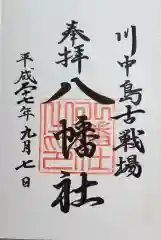 川中島古戦場
奉拝
八幡社
平成二十七年九月七日